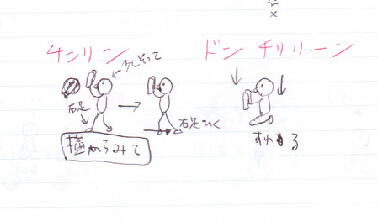 チンリン
ドン チリリーン
右足
右足ひく
横からみて
すわる